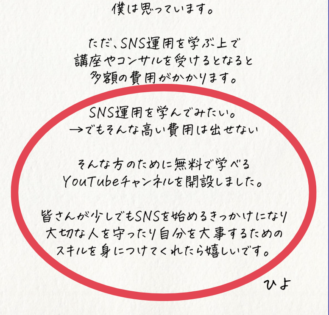 僕は思っています。
ただ、SNS運用を学ぶ上で
講座やコンサルを受けるとなると
多額の費用がかかります。
SNS運用を学んでみたい。
→でもそんな高い費用は出せない
そんな方のために無料で学べる
YouTubeチャンネルを開設しました。
皆さんが少しでもSNSを始めるきっかけになり
大切な人を守ったり自分を大事するための
スキルを身につけてくれたら嬉しいです。
ひよ